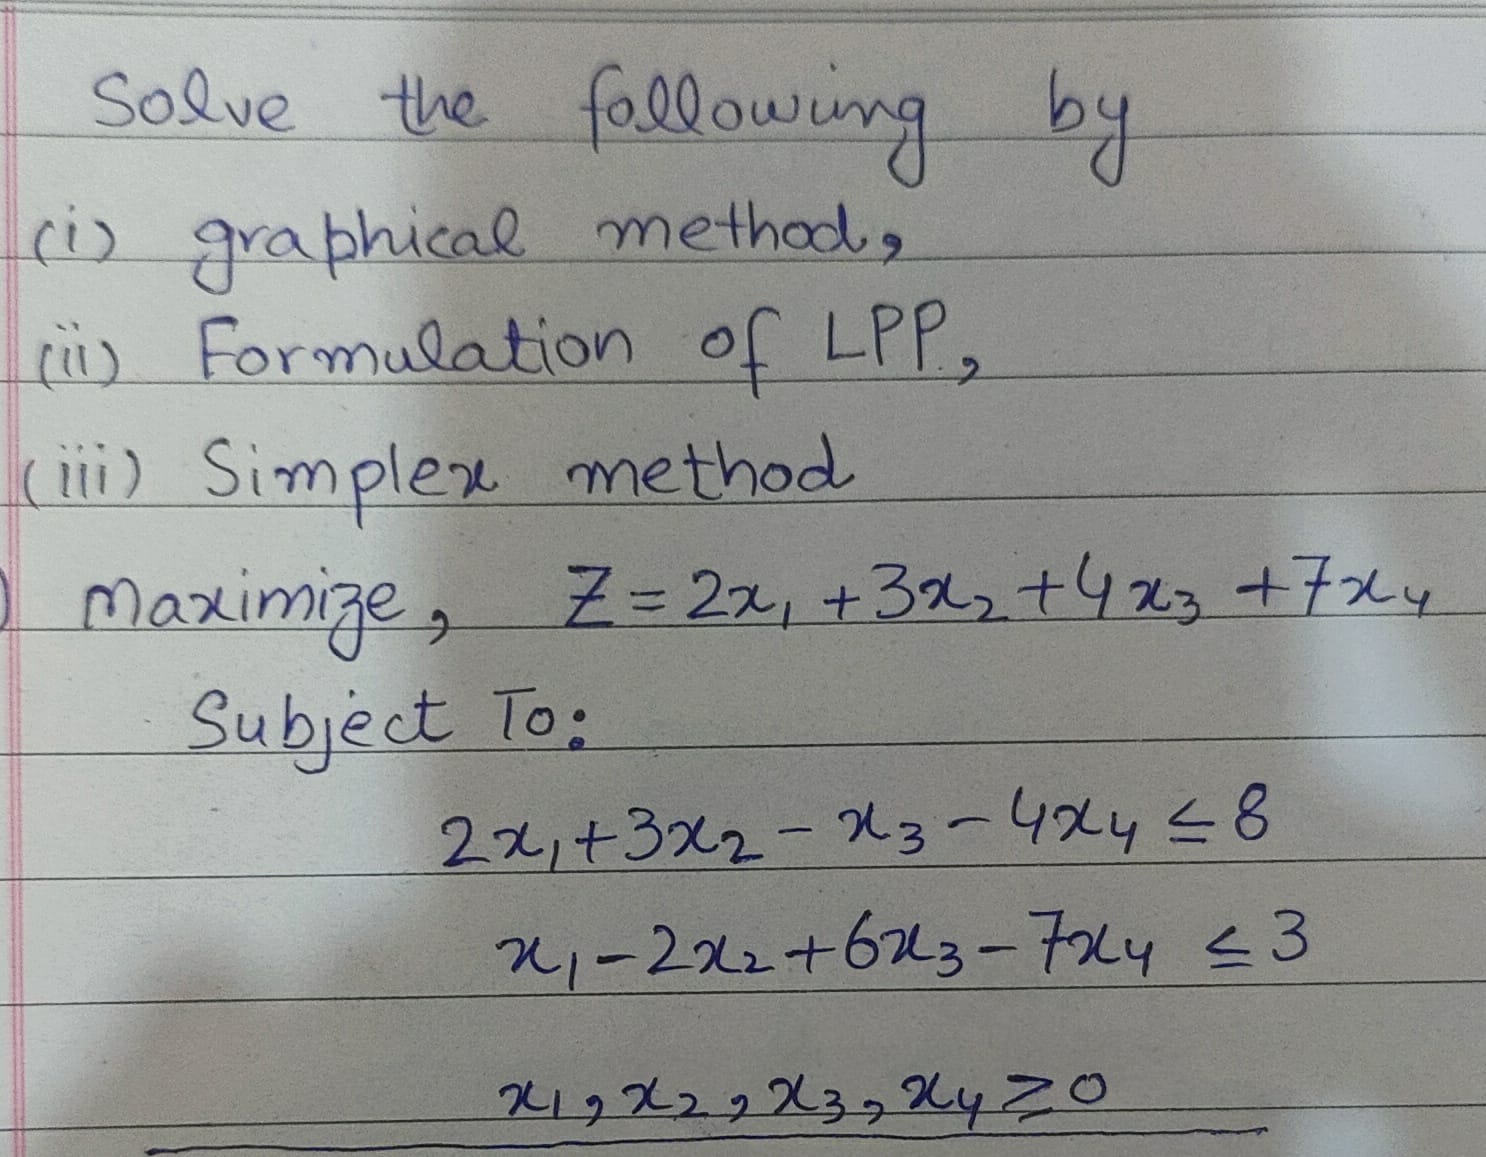 Solve the following by
(i) graphical method,
(ii) Formulation of LPP.,
(iii) Simplex method
) Maximize, Z = 2x₁ + 3x₂ + 4x₃ + 7x₄
Subject To:
2x₁ + 3x₂ - x₃ - 4x₄ ≤ 8
x₁ - 2x₂ + 6x₃ - 7x₄ ≤ 3
x₁, x₂, x₃, x₄ ≥ 0